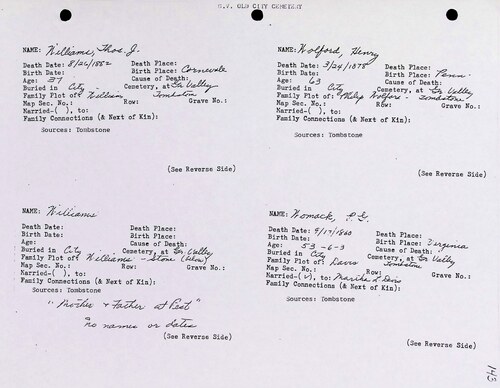 G.V. OLD CITY CEMETERY
NAME: Williams, Thos. J.
Death Date: 8/26/1882 Death Place:
Birth Date: Birth Place: Cornwale
Age: 37 Cause of Death:
Buried in City Cemetery, at Gr Valley
Family Plot of: William Tombstone
Map Sec. No.: Row: Grave No.:
Married-( ), to:
Family Connections (& Next of Kin):
Sources: Tombstone
(See Reverse Side)
NAME: Wolford, Henry
Death Date: 3/24/1878 Death Place:
Birth Date: Birth Place: Penn.
Age: 63 Cause of Death:
Buried in City Cemetery, at Gr Valley
Family Plot of: Philip Wolford - Tombstone
Map Sec. No.: Row: Grave No.:
Married-( ), to:
Family Connections (& Next of Kin):
Sources: Tombstone
(See Reverse Side)
NAME: Williams
Death Date: Death Place:
Birth Date: Birth Place:
Age: Cause of Death:
Buried in City Cemetery, at Gr Valley
Family Plot of: Williams - Stone
Map Sec. No.: Row: Grave No.:
Married-( ), to:
Family Connections (& Next of Kin):
Sources: Tombstone
"Mother & Father at Rest"
no names or dates
(See Reverse Side)
NAME: Womack, P.G.
Death Date: 9/17/1860 Death Place:
Birth Date: Birth Place: Virginia
Age: 53-6-3 Cause of Death:
Buried in City Cemetery, at Gr Valley
Family Plot of: Davis Tombstone
Map Sec. No.: Row: Grave No.:
Married-(v), to: Martha L Davis
Family Connections (& Next of Kin):
Sources: Tombstone
(See Reverse Side)
143